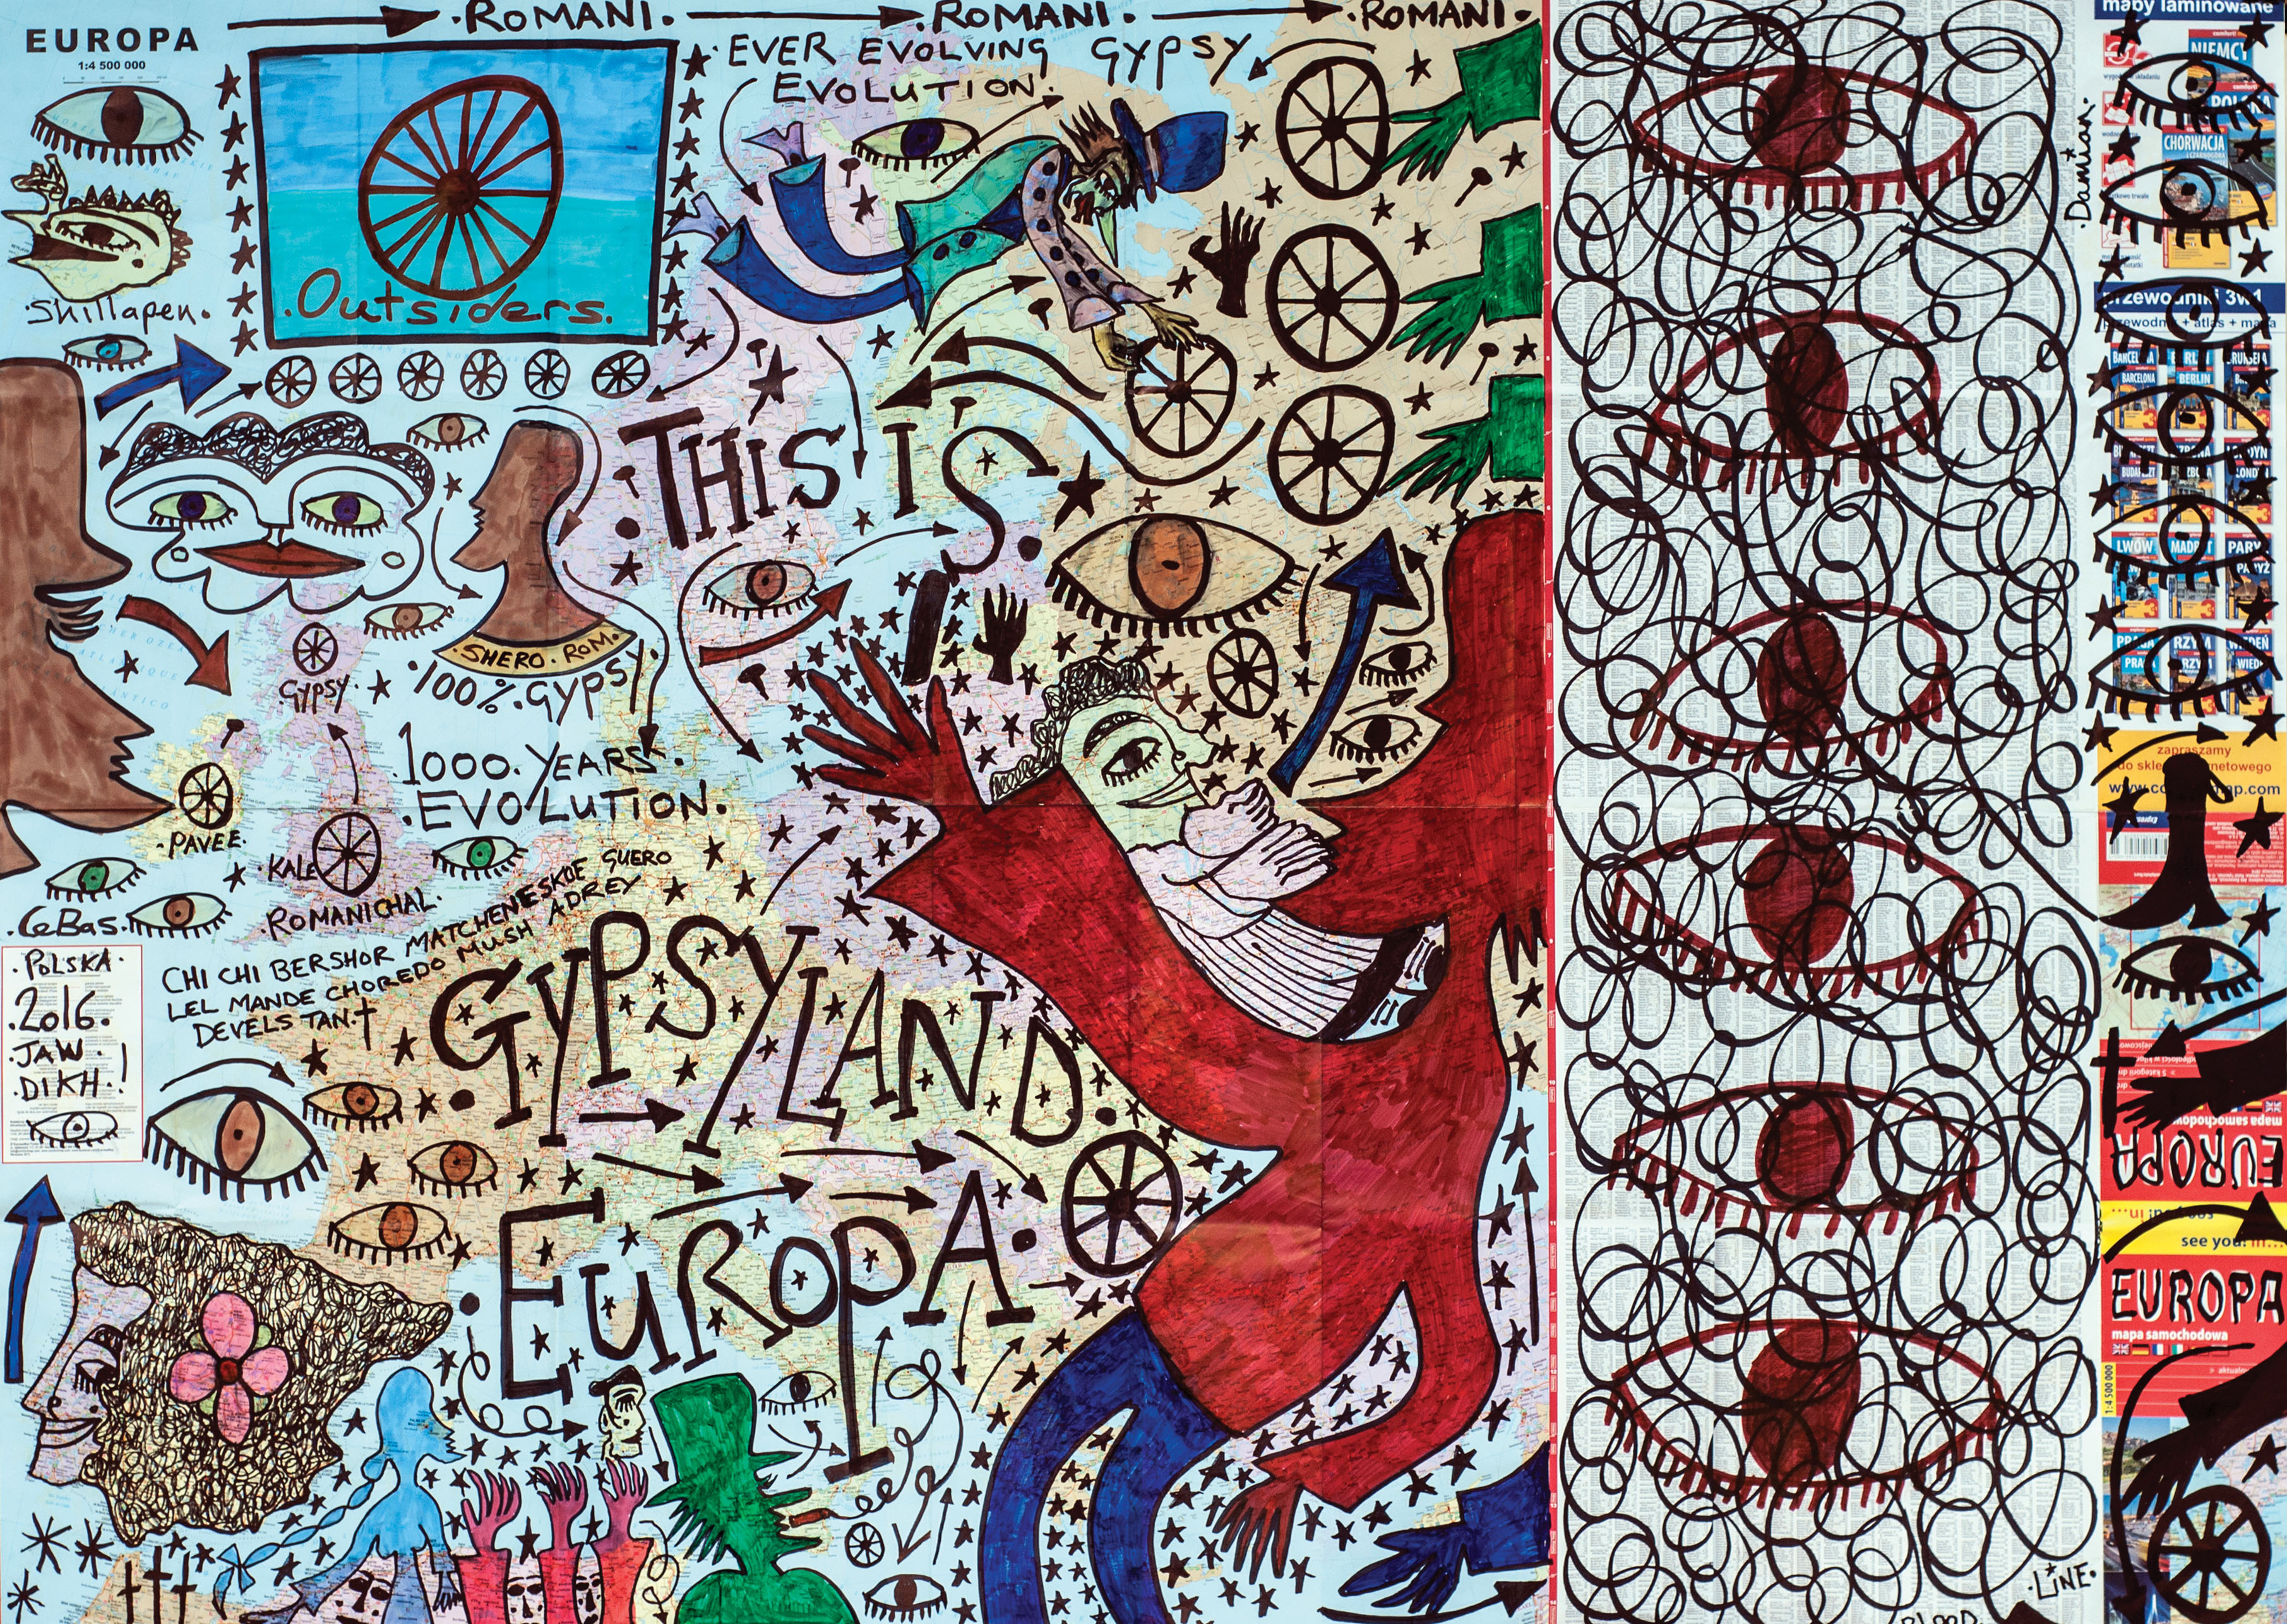 .ROMANI. .ROMANI. .ROMANI.
EUROPA
1:4 500 000
EVER EVOLVING GYPSY
EVOLUTION.
.Outsiders.
.Shillapen.
THIS IS.
.SHERO.ROM.
.100%.GYPSY.
.GYPSY.
.1000.YEARS.
.EVOLUTION.
.PAVEE.
.KALE
.ROMANICHAL.
.LeBas.
CHI CHI BERSHOR MATCHENESKOE GUERO
LEL MANDE CHOREDO MUSH ADREY
DEVELS TAN.
.POLSKA.
.2016.
.JAW.
.DIKH.!
.GYPSYLAND.
.EUROPA.
.Damian.
.LINE.
BLOOD.
mapy laminowane
NIEMCY
POLSKA
CHORWACJA
przewodniki 3w1
przewodnik + atlas + mapa
BARCELONA
BERLIN
LWÓW MADRYT PARYŻ
zapraszamy
do sklepu internetowego
EUROPA
mapa samochodowa
see you! in...
EUROPA
mapa samochodowa
1:4 500 000